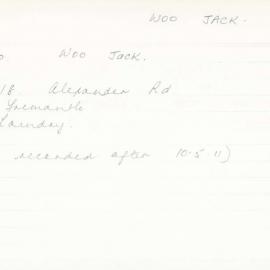 WOO JACK.
WOO JACK.
Alexander Rd
Fremantle
Laundry.
recorded after 10.5.11)